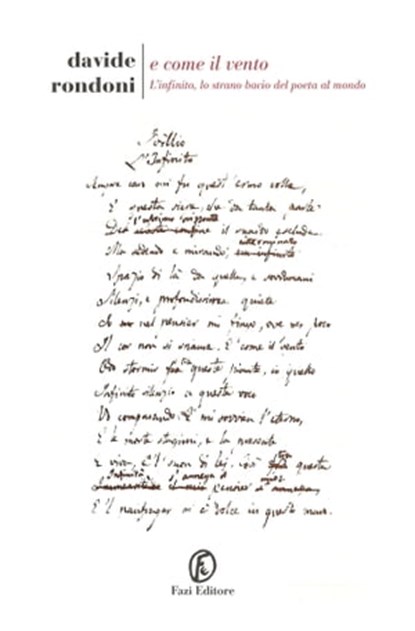 davide
rondoni
e come il vento
L'infinito, lo strano bacio del poeta al mondo
Idillio
L'Infinito
Sempre caro mi fu quest'ermo colle,
E questa siepe, che da tanta parte
l'ultimo orizzonte
De il guardo esclude.
Ma sedendo e mirando,
Spazio di là da quella, e sovrumani
Silenzi, e profondissima quiete
Io nel pensier mi fingo, ove per poco
Il cor non si spaura. E come il vento
Odo stormir fra queste piante, io quello
Infinito silenzio a questa voce
Vo comparando: E mi sovvien l'eterno,
E le morte stagioni, e la presente
E viva, e 'l suon di lei. Così questa
s'annega il
pensier
E il naufragar m'è dolce in questo mare.
Fe
Fazi Editore